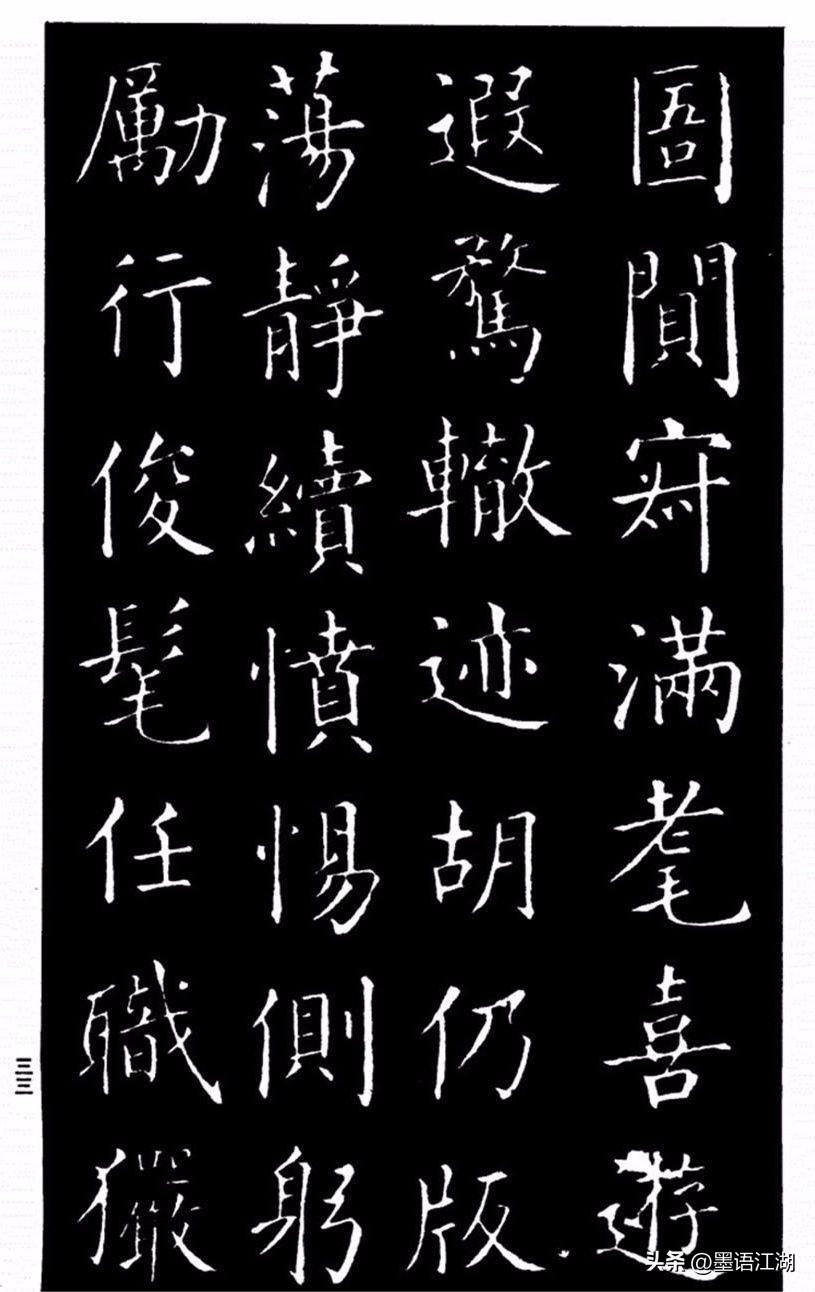 圄閴寂滿耄喜遊
遐騖轍迹胡仍版
蕩靜續憤惕側躬
勵行俊髦任職玁
头条 @墨语江湖